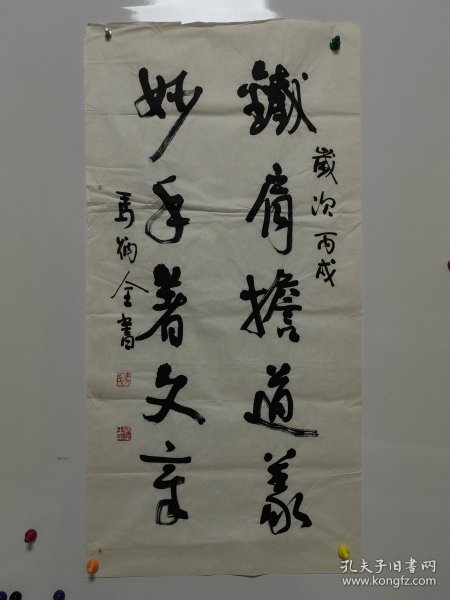 歲次丙戌
鐵肩擔道義
妙手著文章
孔夫子旧书网
www.kongfz.com